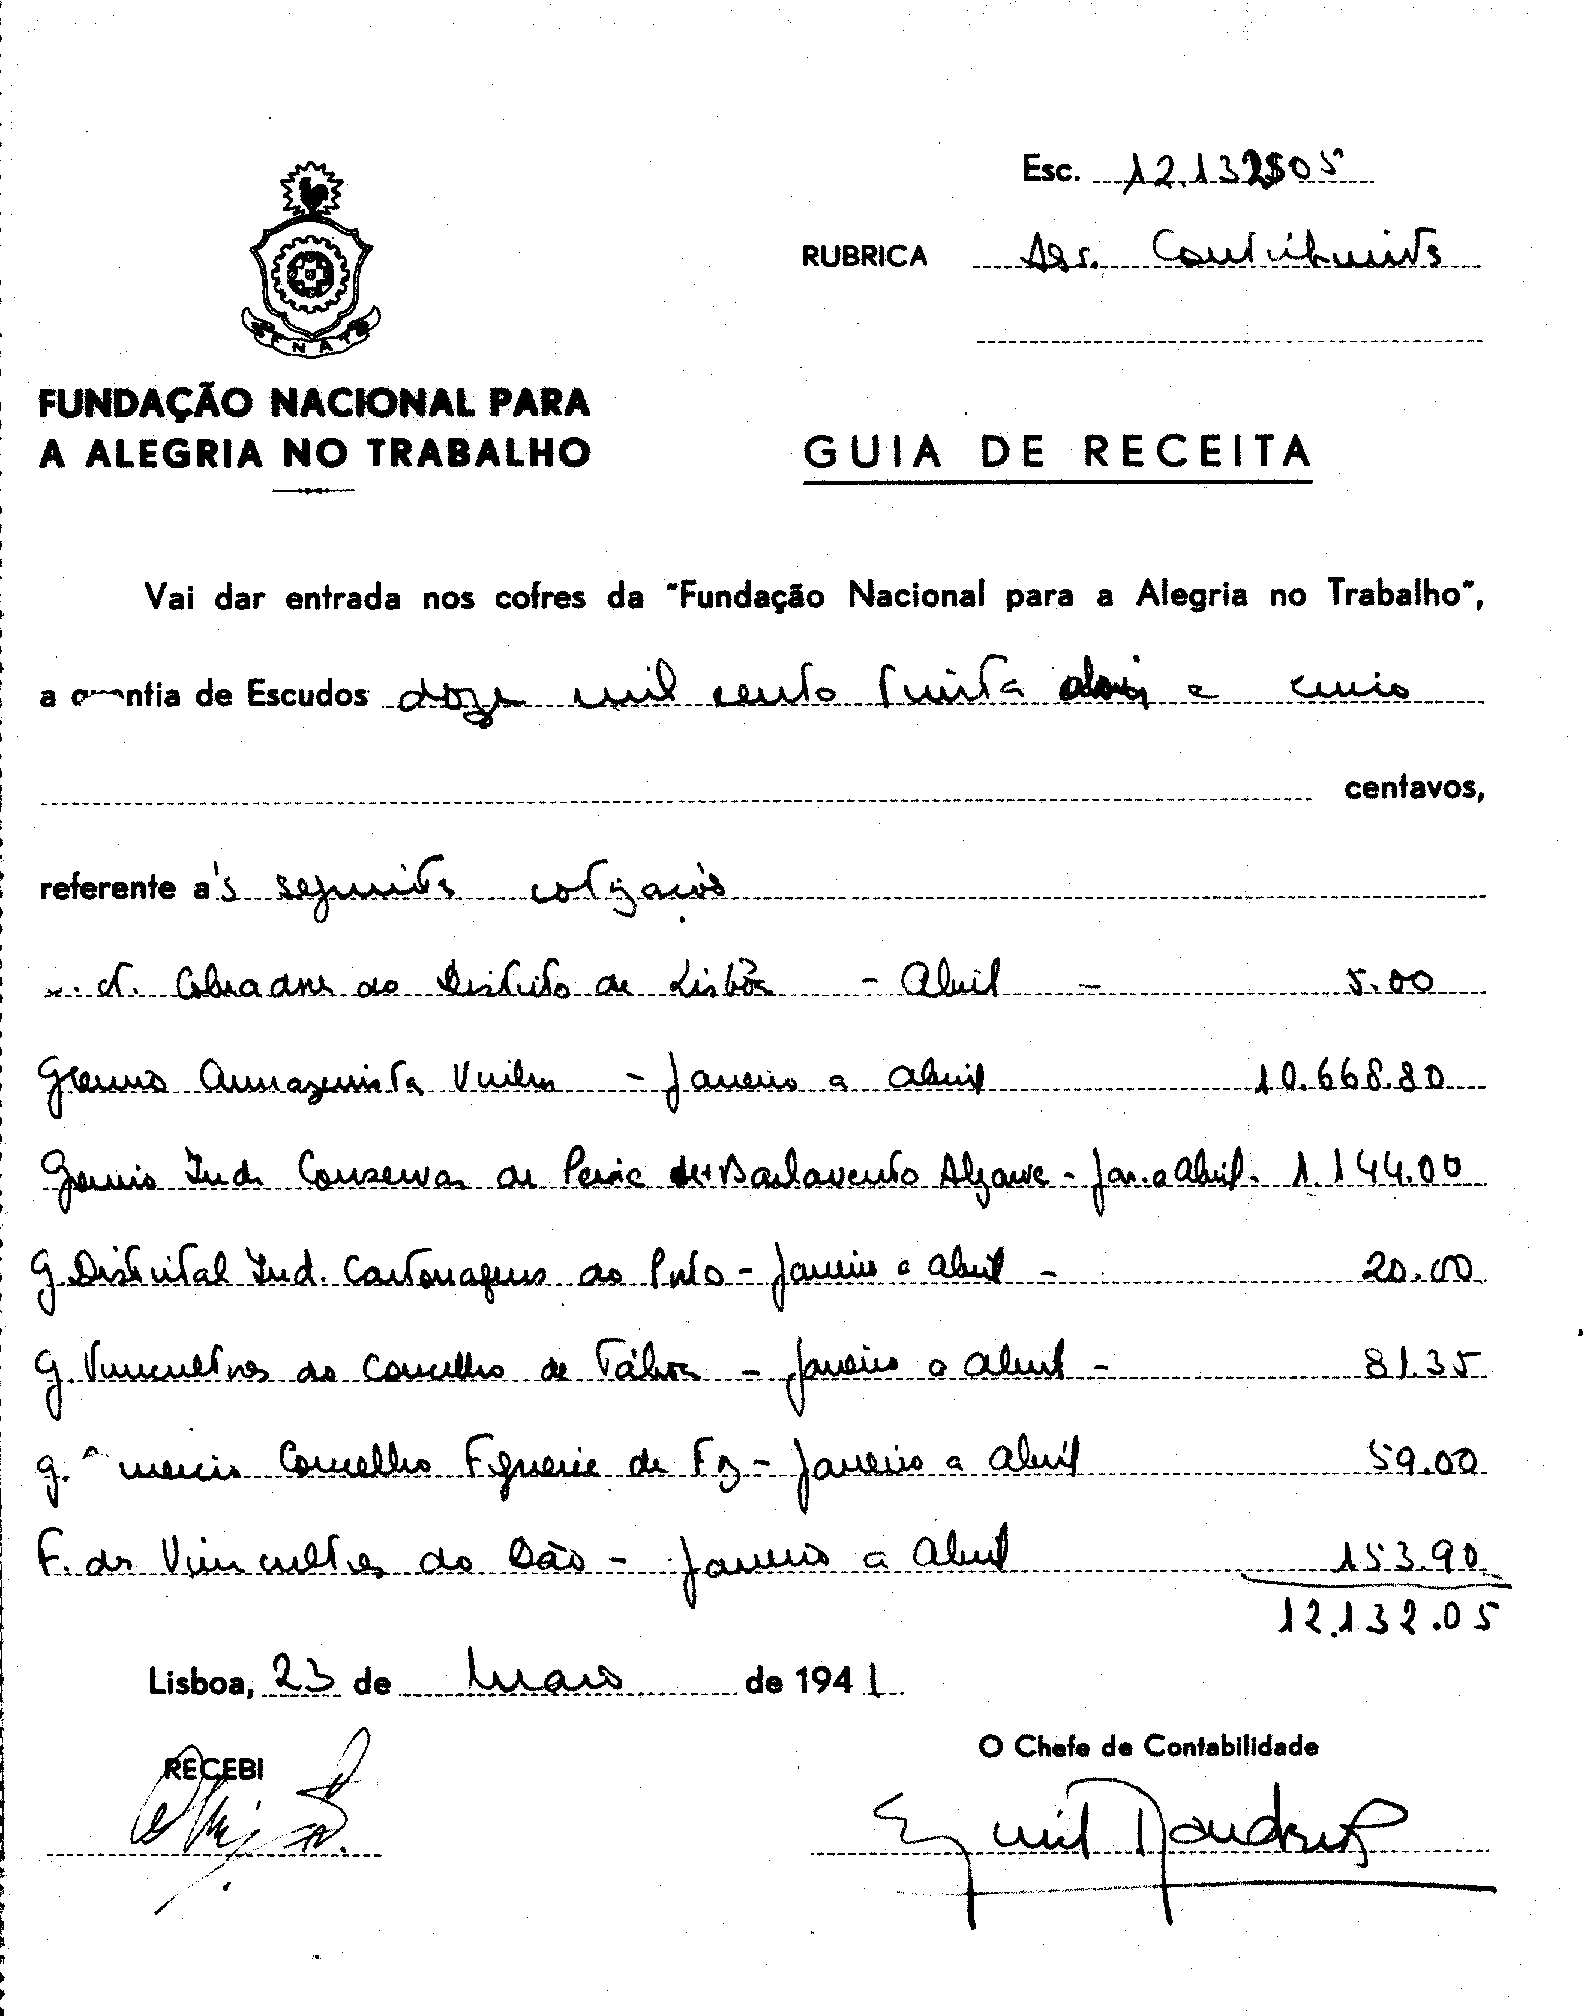 Esc. 12.132$05
RUBRICA Ass. Contribuintes
FNAT
FUNDAÇÃO NACIONAL PARA
A ALEGRIA NO TRABALHO
GUIA DE RECEITA
Vai dar entrada nos cofres da "Fundação Nacional para a Alegria no Trabalho",
a quantia de Escudos doze mil cento trinta dois e cinco
centavos,
referente a's seguintes cotizações
Cobradores do Distrito de Lisbôa - Abril - 5.00
Gremio Armazenista - Janeiro a Abril 10.668.80
Gremio Ind. Conservas de Peixe de Barlavento Algarve - Jan. a Abril. 1.144.00
G. Distrital Ind. Cartonagens do Porto - Janeiro a Abril - 20.00
G. Vinicultores do Concelho de Tábua - Janeiro a Abril - 81.35
G. Concelho Figueira da Foz - Janeiro a Abril 59.00
F. dos Vinicultores do Dão - Janeiro a Abril 153.90
12.132.05
Lisboa, 23 de Maio de 1941
RECEBI
O Chefe de Contabilidade